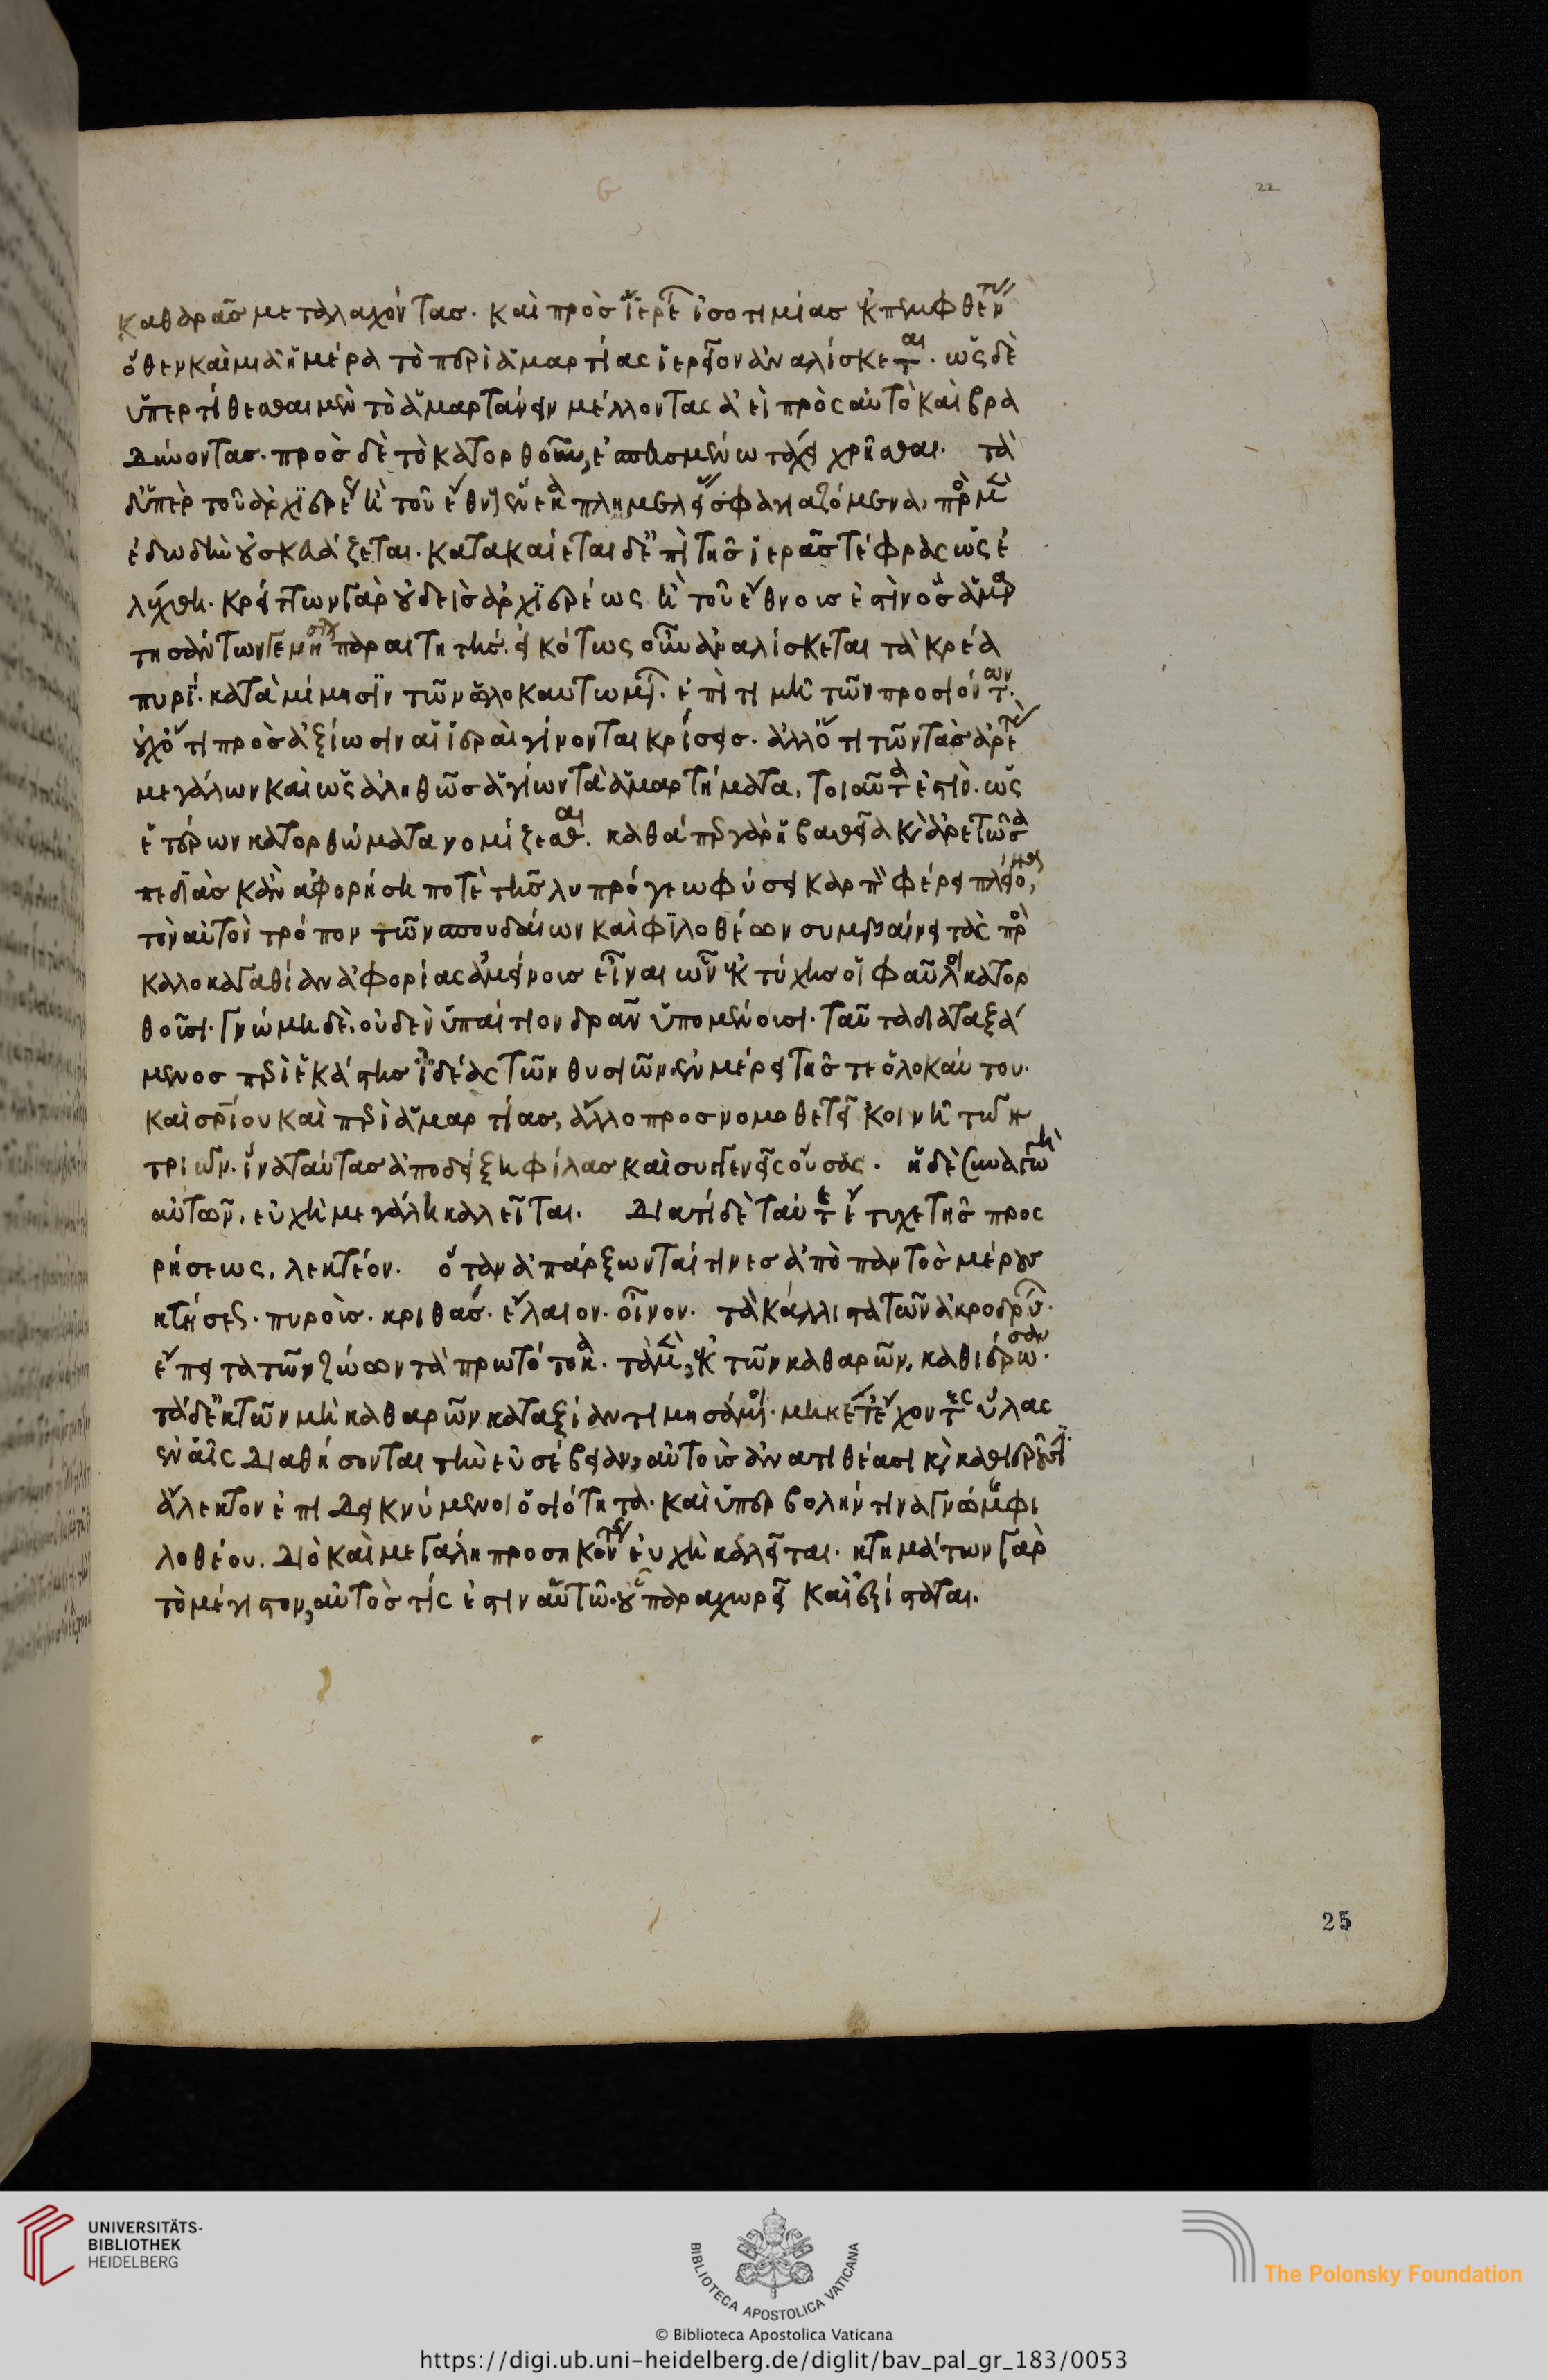 22
καθαρᾶσ μεταλαχόντας. καὶ πρὸσ ἱερέων ἰσοτιμίασ ἐκπεμφθέντων
ὅθεν καὶ μιᾶ ἡμέρα τὸ περὶ ἁμαρτίας ἱερεῖον ἀναλίσκεται. ὡς δὲ
ὑπερτίθεσθαι μὲν τὸ ἁμαρτάνειν μέλλοντας ἀεὶ πρὸς αὐτὸ καὶ βρα
δύνοντας. πρὸσ δὲ τὸ κατορθοῦν, ἐσπευσμένω τάχει χρῆσθαι. τὰ
δ' ὑπὲρ τοῦ ἀρχιερέως ἢ τοῦ ἔθνους ἕνεκα πλημμελείας σφαγιαζόμενα, πρὸσ μὲν
ἐδωδὴν οὐ σκευάζεται. κατακαίεται δ' ἐπὶ τῆσ ἱερᾶσ τέφρας ὡς ἐ
λέχθη. κρείττων γὰρ οὐδεὶσ ἀρχιερέως ἢ τοῦ ἔθνους ἐστὶν ὃσ ἁμαρ
τησάντων γενήσεται παραιτητής. εἰκότως οὖν ἀναλίσκεται τὰ κρέα
πυρί. κατὰ μίμησιν τῶν ὁλοκαυτωμάτων. ἐπὶ τιμῆ τῶν προσιόντων.
οὐχ ὅτι πρὸσ ἀξίωσιν αἱ ἱεραὶ γίνονται κρίσεισ. ἀλλ' ὅτι τῶν τὰσ ἀρετὰς
μεγάλων καὶ ὡς ἀληθῶσ ἁγίων τὰ ἁμαρτήματα, τοιαῦτά ἐστιν. ὡς
ἑτέρων κατορθώματα νομίζεσθαι. καθάπερ γὰρ ἡ βαθεῖα καὶ ἀρετῶσα
πεδιὰσ κἂν ἀφορήση ποτὲ τῆσ λυπρόγεω φύσει καρπὸν φέρει πλείονα,
τὸν αὐτὸν τρόπον τῶν σπουδαίων καὶ φιλοθέων συμβαίνει τὰς πρὸς
καλοκαγαθίαν ἀφορίας ἀμείνους εἶναι ὧν ἐκ τύχησ οἱ φαῦλοι κατορ
θοῦσι. γνώμη δὲ, οὐδὲν ὑπαίτιον δρᾶν ὑπομένουσι. ταῦτα διαταξά
μενοσ περὶ ἑκάστησ ἰδέας τῶν θυσιῶν. ἐν μέρει τῆσ τε ὁλοκαύτου.
καὶ σρίου καὶ περὶ ἁμαρτίασ, ἄλλο προσνομοθετεῖ κοινῆ τῶν
τριῶν. ἵνα ταύτασ ἀποδείξη φίλασ καὶ συγγενεῖς οὔσας. ἡ δὲ συναγωγὴ
αὐτῶν, εὐχὴ μεγάλη καλεῖται. Διατί δὲ ταύτης ἔτυχε τῆσ προς
ρήσεως, λεκτέον. ὅταν ἀπάρξωνταί τινεσ ἀπὸ παντὸσ μέρουσ
κτήσεως. πυροὺσ. κριθάσ. ἔλαιον. οἶνον. τὰ κάλλιστα τῶν ἀκροδρύων.
ἔπειτα τῶν ζώων τὰ πρωτότοκα. τὰ μὲν, ἐκ τῶν καθαρῶν, καθιερώσαντες.
τὰ δ' ἐκ τῶν μὴ καθαρῶν κατ' ἀξίαν τιμησάμενοι. μηκέτι ἔχοντες ὕλας
ἐν αἷς διαθήσονται τὴν εὐσέβειαν, αὑτοὺσ ἀνατιθέασι καὶ καθιεροῦσιν.
ἄλεκτον ἐπιδεικνύμενοι ὁσιότητα. καὶ ὑπερβολήν τινα γνώμης φι
λοθέου. Διὸ καὶ μεγάλη προσηκόντως εὐχὴ καλεῖται. κτημάτων γὰρ
τὸ μέγιστον, αὐτὸσ τίς ἐστιν αὑτῶ. οὗ παραχωρεῖ καὶ ἐξίσταται.
25
UNIVERSITÄTS-
BIBLIOTHEK
HEIDELBERG
BIBLIOTECA APOSTOLICA VATICANA
The Polonsky Foundation
© Biblioteca Apostolica Vaticana
https://digi.ub.uni-heidelberg.de/diglit/bav_pal_gr_183/0053